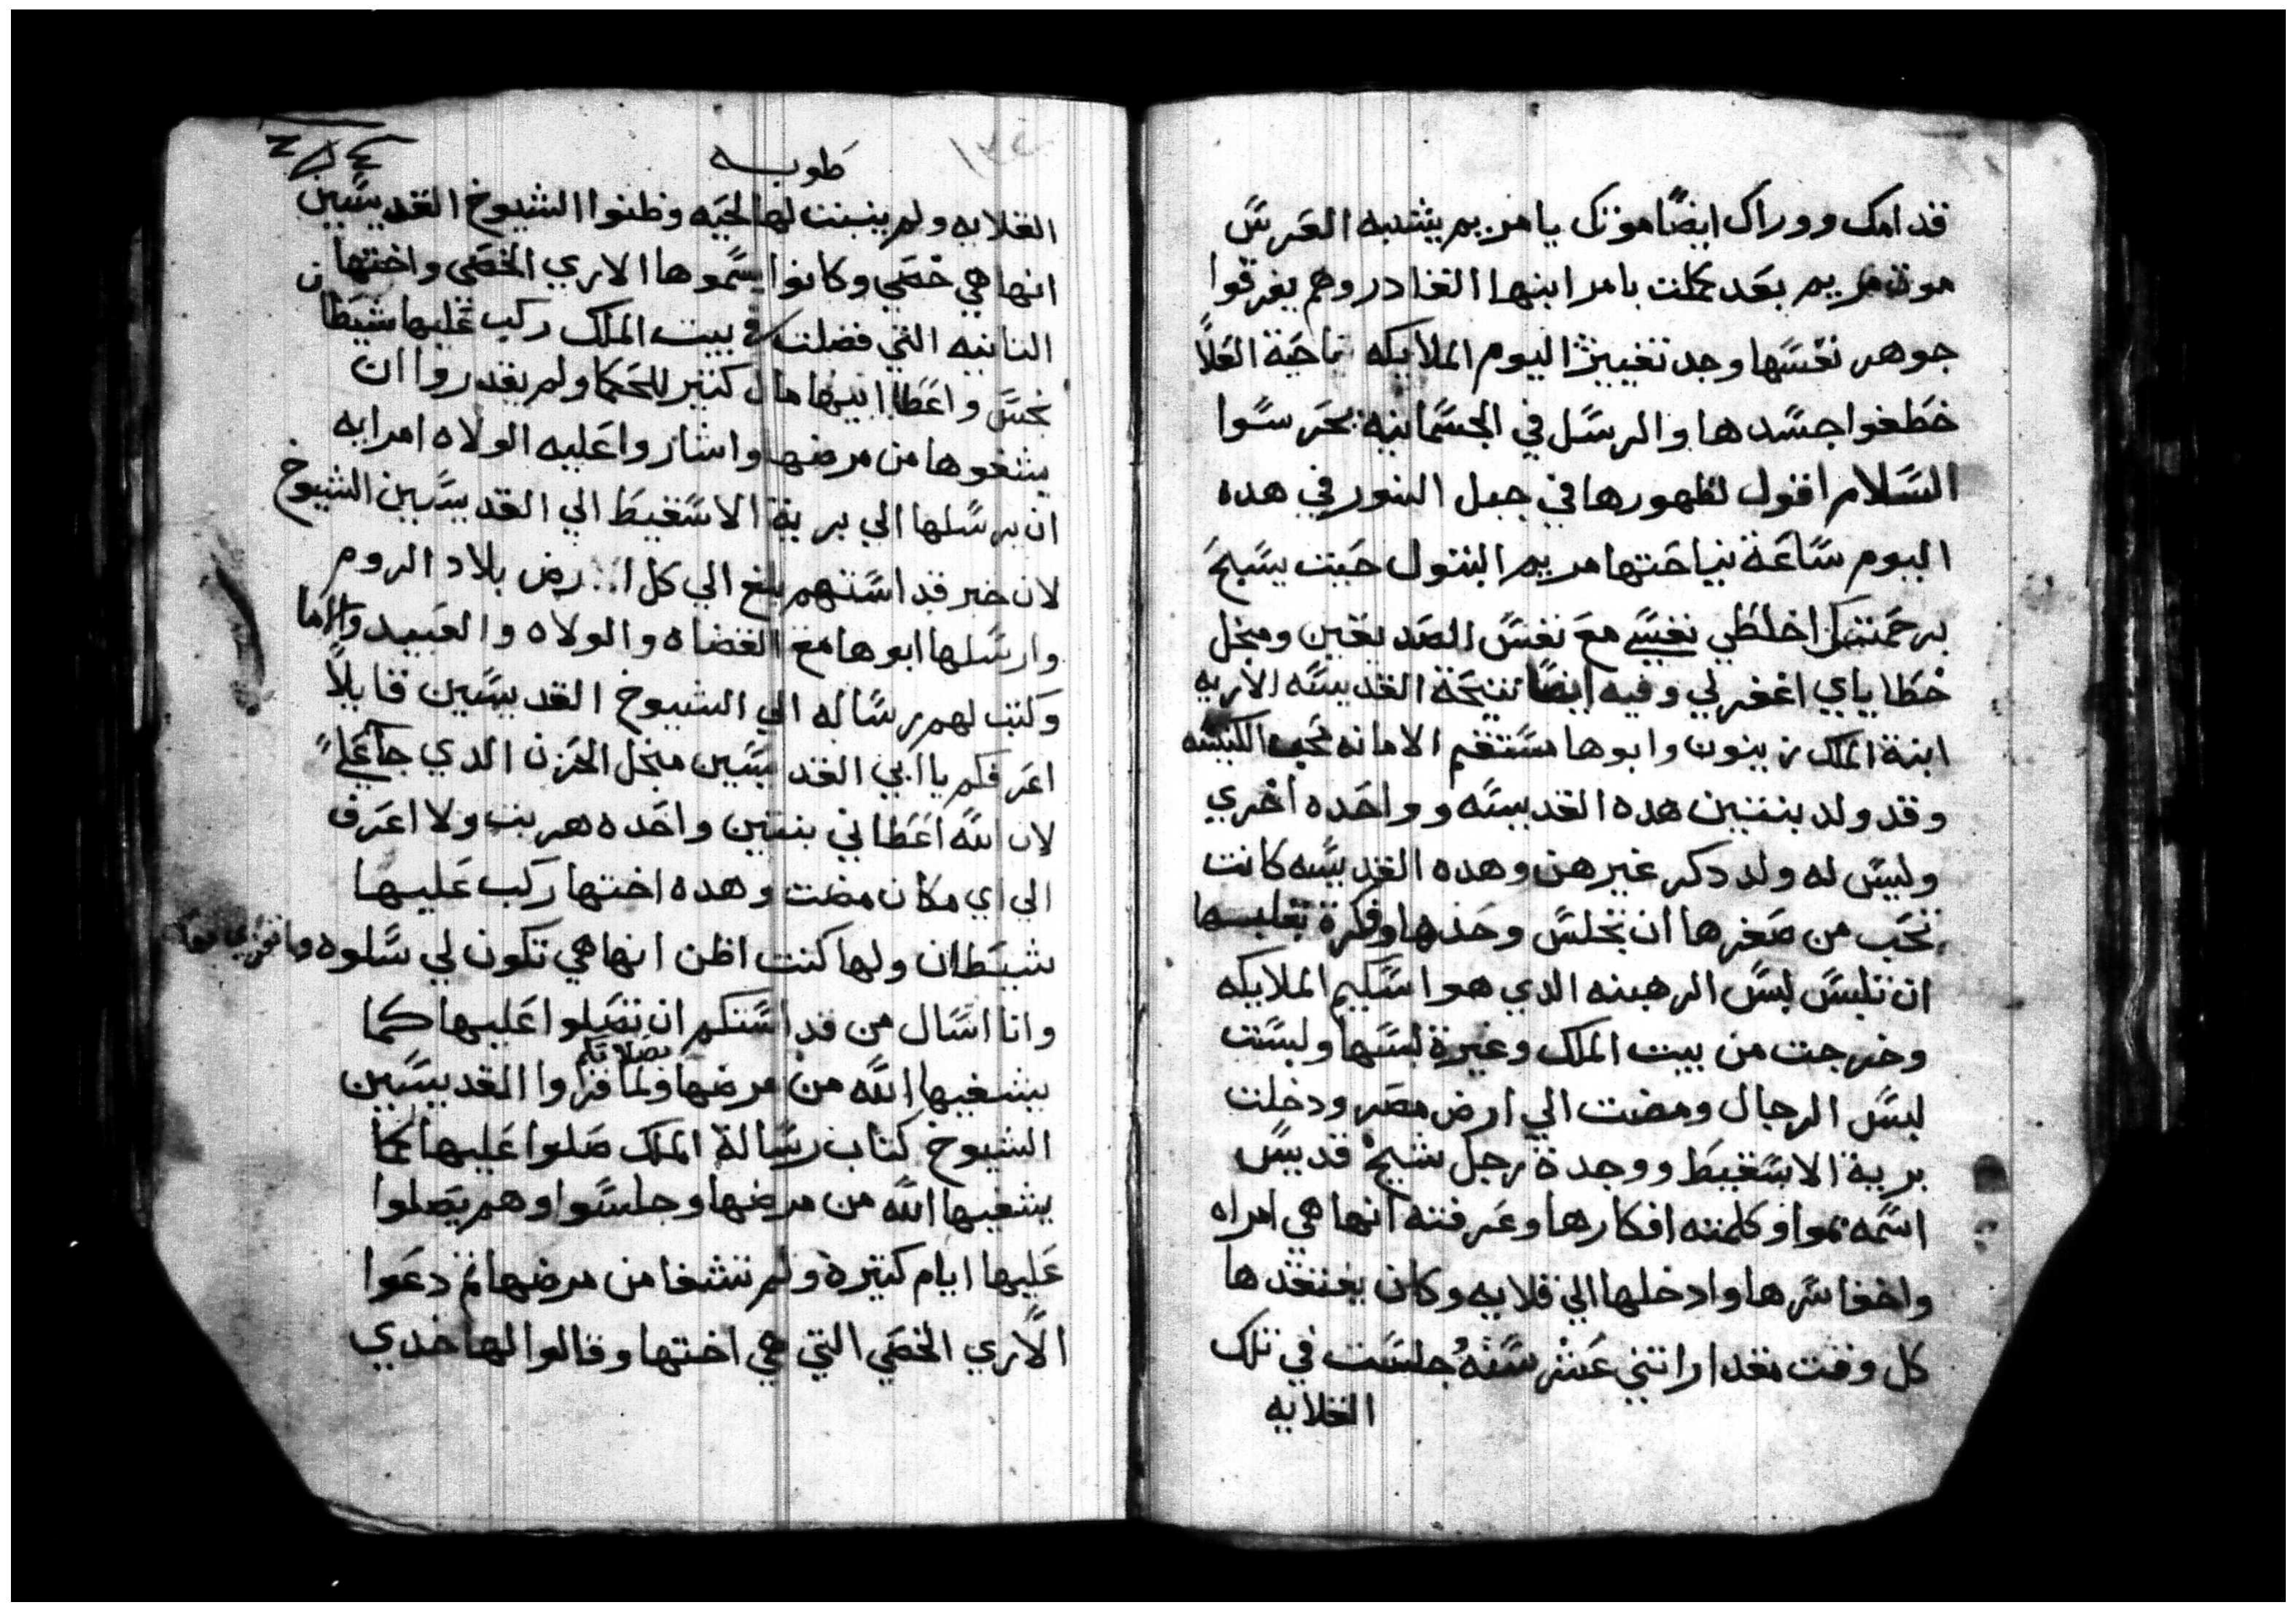 قدامك ووراك ايضًا موتكى يا مريم يشبه العرس
موت مريم بعد كملت بامر ابنها القادر وهم يفرقوا
جوهر نفسها وجد تغييرًا اليوم الملايكه ناحية العلا
خطفوا جسدها والرسل في الجسمانيه بحرسوا
السلام اقول لظهورها في جبل النور في هده
اليوم ساعة نياحتها مريم البتول حيت يسبح
برحمتكى اخلطي نفسي مع نفس الصديقين ومنجل
خطاياي اغفر لي وفيه ايضًا تنيحة القديسه الاريه
ابنة الملك زينون وابوها مستقيم الامانه محب الكنيسه
وقد ولد بنتين هده القديسه وواحده اخري
وليس له ولد دكر غيرهن وهده القديسه كانت
تحب من صغرها ان تجلس وحدها وفكرة بقلبها
ان تلبس لبس الرهبنه الدي هو اسكيم الملايكه
وخرجت من بيت الملك وغيرة لبسها ولبست
لبس الرجال ومضت الي ارض مصر ودخلت
برية الاسقيط ووجدة رجل شيخ قديس
اسمه بموا وكلمته افكارها وعرفته انها هي امراه
واخفا سرها وادخلها الي قلايه وكان يفتقدها
كل وقت مقدار اتني عشر سنه وجلست في تلك
القلايه
طوبه
القلايه ولم ينبت لها لحيه وظنوا الشيوخ القديسين
انها هي خصي وكانوا يسموها الاري الخصي واختها
التانيه التي فضلت في بيت الملك ركب عليها شيطان
نجس واعطا ابيها مال كتير للحكما ولم يقدروا ان
يشفوها من مرضها واشاروا عليه الولاه امرايه
ان يرسلها الي برية الاسقيط الي القديسين الشيوخ
لان خبر قداستهم بلغ الي كل ارض بلاد الروم
وارسلها ابوها مع القضاه والولاه والعبيد والاما
وكتب لهم رساله الي الشيوخ القديسين قايلاً
اعرفكم يا ابي القديسين منجل الحزن الدي جا علي
لان الله اعطاني بنتين واحده هربت ولا اعرف
الي اي مكان مضت وهده اختها ركب عليها
شيطان ولها كنت اظن انها هي تكون لي سلوه
وانا اسال من قداستكم ان تصلوا عليها كما
يشفيها الله من مرضها بصلاتكم ولما قروا القديسين
الشيوخ كتاب رسالة الملك صلوا عليها كما
يشفيها الله من مرضها وجلسوا وهم يصلوا
عليها ايام كتيرة ولم تشفا من مرضها تم دعوا
الاري الخصي التي هي اختها وقالوا لها خدي